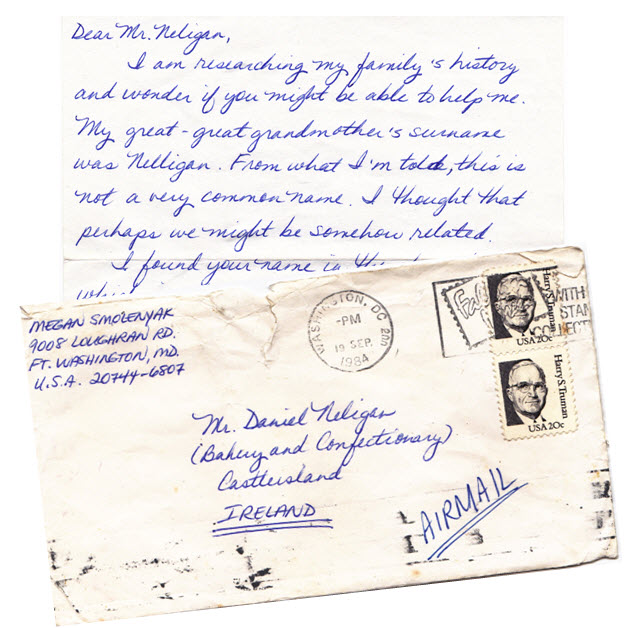 Dear Mr. Neligan,
I am researching my family's history
and wonder if you might be able to help me.
My great-great grandmother's surname
was Nelligan. From what I'm told, this is
not a very common name. I thought that
perhaps we might be somehow related.
I found your name in
MEGAN SMOLENYAK
9008 LOUGHRAN RD.
FT. WASHINGTON, MD.
U.S.A. 20744-6807
WASHINGTON, DC
-PM
19 SEP
1984
WITH
STAM
COLLECT
Harry S. Truman
USA 20c
Harry S. Truman
USA 20c
Mr. Daniel Neligan
(Bakery and Confectionary)
Castleisland
IRELAND
AIRMAIL